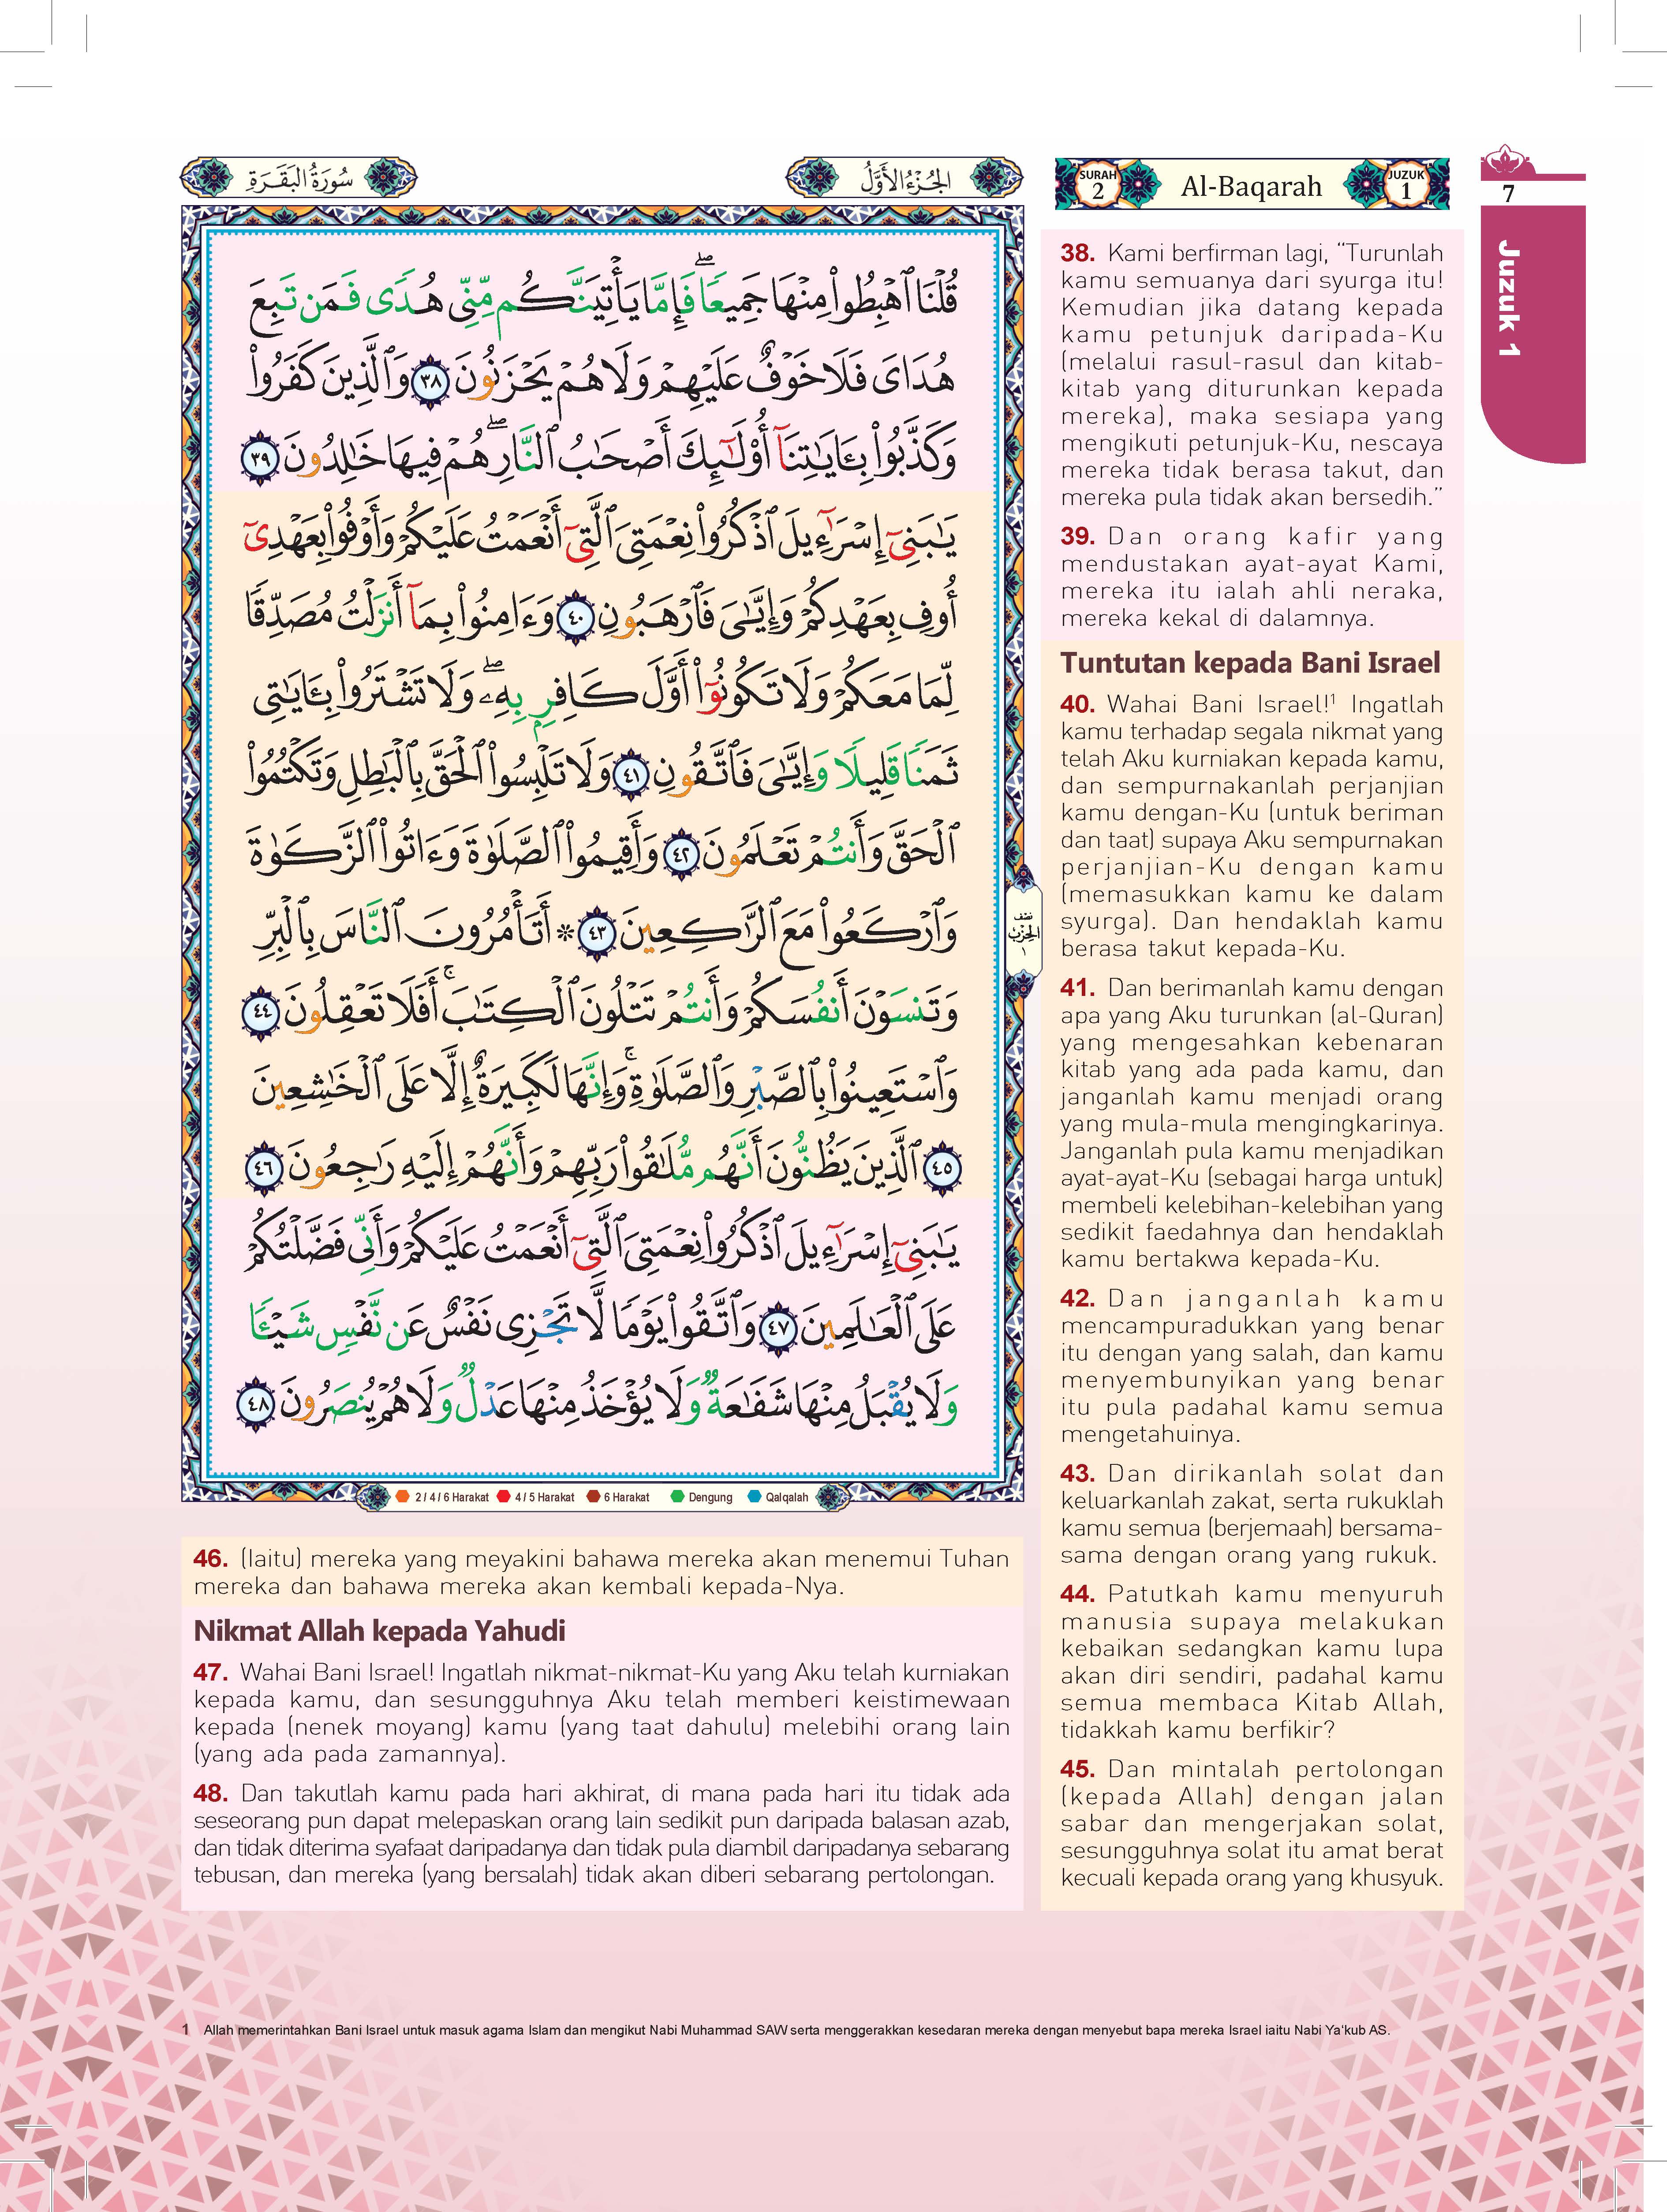 سُورَةُ البَقَـرَةِ
الجُزْءُ الأَوَّلُ
قُلْنَا ٱهْبِطُوا۟ مِنْهَا جَمِيعًا ۖ فَإِمَّا يَأْتِيَنَّكُم مِّنِّى هُدًى فَمَن تَبِعَ
هُدَاىَ فَلَا خَوْفٌ عَلَيْهِمْ وَلَا هُمْ يَحْزَنُونَ ٣٨ وَٱلَّذِينَ كَفَرُوا۟
وَكَذَّبُوا۟ بِـَٔايَـٰتِنَآ أُو۟لَـٰٓئِكَ أَصْحَـٰبُ ٱلنَّارِ ۖ هُمْ فِيهَا خَـٰلِدُونَ ٣٩
يَـٰبَنِىٓ إِسْرَٰٓءِيلَ ٱذْكُرُوا۟ نِعْمَتِىَ ٱلَّتِىٓ أَنْعَمْتُ عَلَيْكُمْ وَأَوْفُوا۟ بِعَهْدِىٓ
أُوفِ بِعَهْدِكُمْ وَإِيَّـٰىَ فَٱرْهَبُونِ ٤٠ وَءَامِنُوا۟ بِمَآ أَنزَلْتُ مُصَدِّقًا
لِّمَا مَعَكُمْ وَلَا تَكُونُوٓا۟ أَوَّلَ كَافِرٍۭ بِهِۦ ۖ وَلَا تَشْتَرُوا۟ بِـَٔايَـٰتِى
ثَمَنًا قَلِيلًا وَإِيَّـٰىَ فَٱتَّقُونِ ٤١ وَلَا تَلْبِسُوا۟ ٱلْحَقَّ بِٱلْبَـٰطِلِ وَتَكْتُمُوا۟
ٱلْحَقَّ وَأَنتُمْ تَعْلَمُونَ ٤٢ وَأَقِيمُوا۟ ٱلصَّلَوٰةَ وَءَاتُوا۟ ٱلزَّكَوٰةَ
وَٱرْكَعُوا۟ مَعَ ٱلرَّٰكِعِينَ ٤٣ * أَتَأْمُرُونَ ٱلنَّاسَ بِٱلْبِرِّ
نصف
الحزب
١
وَتَنسَوْنَ أَنفُسَكُمْ وَأَنتُمْ تَتْلُونَ ٱلْكِتَـٰبَ ۚ أَفَلَا تَعْقِلُونَ ٤٤
وَٱسْتَعِينُوا۟ بِٱلصَّبْرِ وَٱلصَّلَوٰةِ ۚ وَإِنَّهَا لَكَبِيرَةٌ إِلَّا عَلَى ٱلْخَـٰشِعِينَ
٤٥ ٱلَّذِينَ يَظُنُّونَ أَنَّهُم مُّلَـٰقُوا۟ رَبِّهِمْ وَأَنَّهُمْ إِلَيْهِ رَٰجِعُونَ ٤٦
يَـٰبَنِىٓ إِسْرَٰٓءِيلَ ٱذْكُرُوا۟ نِعْمَتِىَ ٱلَّتِىٓ أَنْعَمْتُ عَلَيْكُمْ وَأَنِّى فَضَّلْتُكُمْ
عَلَى ٱلْعَـٰلَمِينَ ٤٧ وَٱتَّقُوا۟ يَوْمًا لَّا تَجْزِى نَفْسٌ عَن نَّفْسٍ شَيْـًٔا
وَلَا يُقْبَلُ مِنْهَا شَفَـٰعَةٌ وَلَا يُؤْخَذُ مِنْهَا عَدْلٌ وَلَا هُمْ يُنصَرُونَ ٤٨
2 / 4 / 6 Harakat 4 / 5 Harakat 6 Harakat Dengung Qalqalah
SURAH 2 Al-Baqarah JUZUK 1
7
Juzuk 1
38. Kami berfirman lagi, “Turunlah
kamu semuanya dari syurga itu!
Kemudian jika datang kepada
kamu petunjuk daripada-Ku
(melalui rasul-rasul dan kitab-
kitab yang diturunkan kepada
mereka), maka sesiapa yang
mengikuti petunjuk-Ku, nescaya
mereka tidak berasa takut, dan
mereka pula tidak akan bersedih.”
39. Dan orang kafir yang
mendustakan ayat-ayat Kami,
mereka itu ialah ahli neraka,
mereka kekal di dalamnya.
Tuntutan kepada Bani Israel
40. Wahai Bani Israel!¹ Ingatlah
kamu terhadap segala nikmat yang
telah Aku kurniakan kepada kamu,
dan sempurnakanlah perjanjian
kamu dengan-Ku (untuk beriman
dan taat) supaya Aku sempurnakan
perjanjian-Ku dengan kamu
(memasukkan kamu ke dalam
syurga). Dan hendaklah kamu
berasa takut kepada-Ku.
41. Dan berimanlah kamu dengan
apa yang Aku turunkan (al-Quran)
yang mengesahkan kebenaran
kitab yang ada pada kamu, dan
janganlah kamu menjadi orang
yang mula-mula mengingkarinya.
Janganlah pula kamu menjadikan
ayat-ayat-Ku (sebagai harga untuk)
membeli kelebihan-kelebihan yang
sedikit faedahnya dan hendaklah
kamu bertakwa kepada-Ku.
42. Dan janganlah kamu
mencampuradukkan yang benar
itu dengan yang salah, dan kamu
menyembunyikan yang benar
itu pula padahal kamu semua
mengetahuinya.
43. Dan dirikanlah solat dan
keluarkanlah zakat, serta rukuklah
kamu semua (berjemaah) bersama-
sama dengan orang yang rukuk.
44. Patutkah kamu menyuruh
manusia supaya melakukan
kebaikan sedangkan kamu lupa
akan diri sendiri, padahal kamu
semua membaca Kitab Allah,
tidakkah kamu berfikir?
45. Dan mintalah pertolongan
(kepada Allah) dengan jalan
sabar dan mengerjakan solat,
sesungguhnya solat itu amat berat
kecuali kepada orang yang khusyuk.
46. (Iaitu) mereka yang meyakini bahawa mereka akan menemui Tuhan
mereka dan bahawa mereka akan kembali kepada-Nya.
Nikmat Allah kepada Yahudi
47. Wahai Bani Israel! Ingatlah nikmat-nikmat-Ku yang Aku telah kurniakan
kepada kamu, dan sesungguhnya Aku telah memberi keistimewaan
kepada (nenek moyang) kamu (yang taat dahulu) melebihi orang lain
(yang ada pada zamannya).
48. Dan takutlah kamu pada hari akhirat, di mana pada hari itu tidak ada
seseorang pun dapat melepaskan orang lain sedikit pun daripada balasan azab,
dan tidak diterima syafaat daripadanya dan tidak pula diambil daripadanya sebarang
tebusan, dan mereka (yang bersalah) tidak akan diberi sebarang pertolongan.
1 Allah memerintahkan Bani Israel untuk masuk agama Islam dan mengikut Nabi Muhammad SAW serta menggerakkan kesedaran mereka dengan menyebut bapa mereka Israel iaitu Nabi Ya‘kub AS.